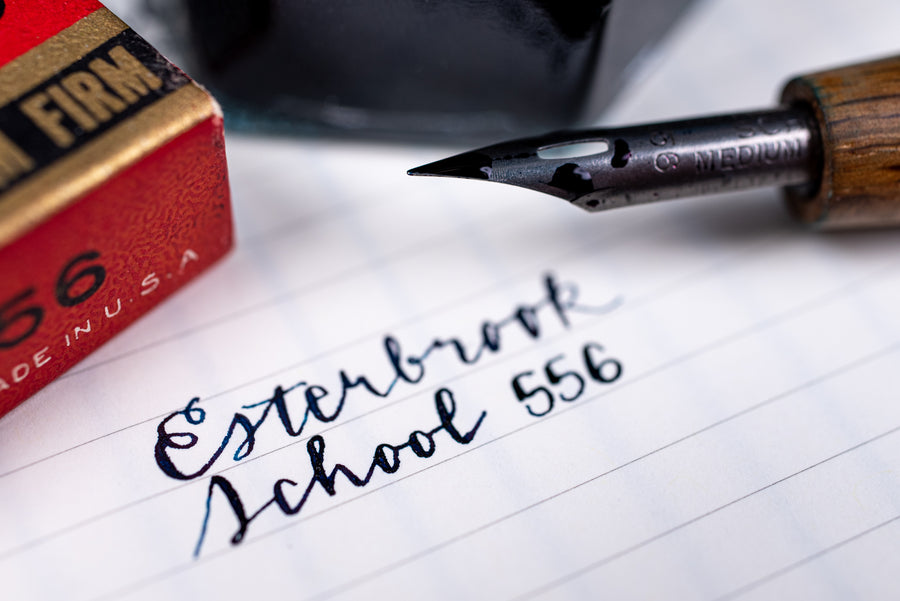 FIRM
56
ADE IN U.S.A
MEDIUM
Esterbrook
School 556